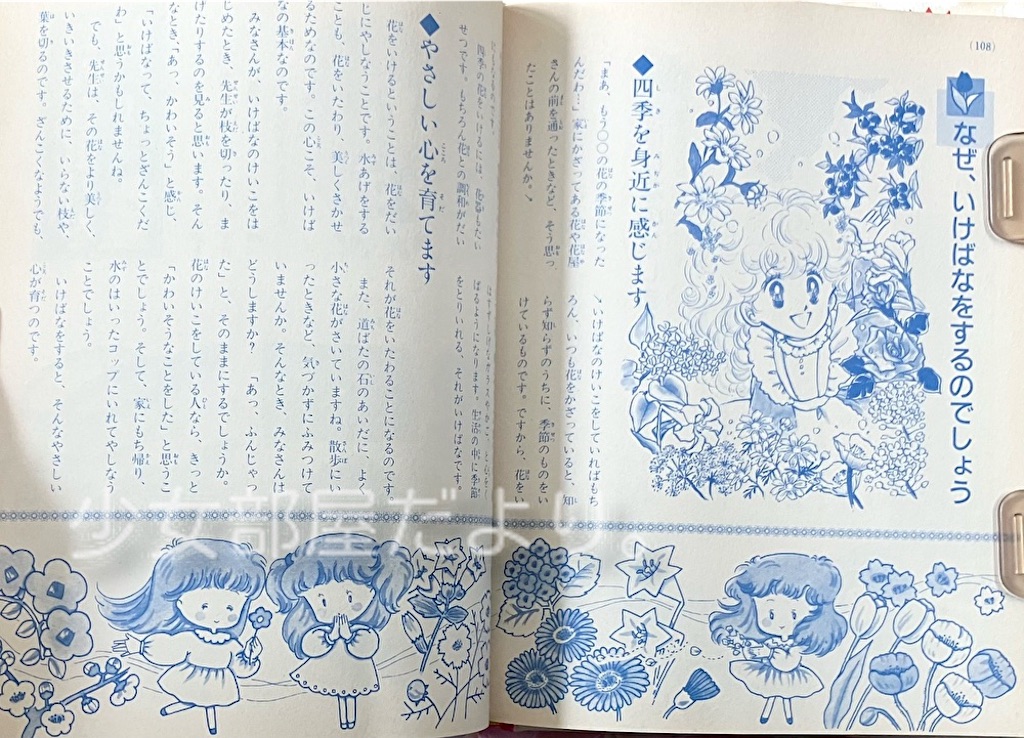 (108)
なぜ、いけばなをするのでしょう
◆四季を身近に感じます
「まあ、もう〇〇の花の季節になった
んだわ…」家にかざってある花や花屋
さんの前を通ったときなど、そう思っ
たことはありませんか。↘
↘いけばなのけいこをしていればもち
ろん、いつも花をかざっていると、知
らず知らずのうちに、季節のものをい
けているものです。ですから、花をい
四季の花をいけるには、花器もたい
せつです。もちろん花との調和がだい
ばるようになります。生活の中に季節
をとりいれる、それがいけばなです。
◆やさしい心を育てます
花をいけるということは、花をだい
じにやしなうことです。水あげをする
ことも、花をいたわり、美しくさかせ
るためなのです。この心こそ、いけば
なの基本なのです。
みなさんが、いけばなのけいこをは
じめたとき、先生が枝を切ったり、ま
げたりするのを見ると思います。そん
なとき、「あっ、かわいそう」と感じ、
「いけばなって、ちょっとざんこくだ
わ」と思うかもしれませんね。
でも、先生は、その花をより美しく、
いきいきさせるために、いらない枝や、
葉を切るのです。ざんこくなようでも、
それが花をいたわることになるのです。
また、道ばたの石のあいだに、よく
小さな花がさいていますね。散歩にい
ったときなど、気づかずにふみつけて
いませんか。そんなとき、みなさんは
どうしますか？「あっ、ふんじゃっ
た」と、そのままにするでしょうか。
花のけいこをしている人なら、きっと
「かわいそうなことをした」と思うこ
とでしょう。そして、家にもち帰り、
水のはいったコップにいれてやしなう
ことでしょう。
いけばなをすると、そんなやさしい
心が育つのです。
少女部屋だより。